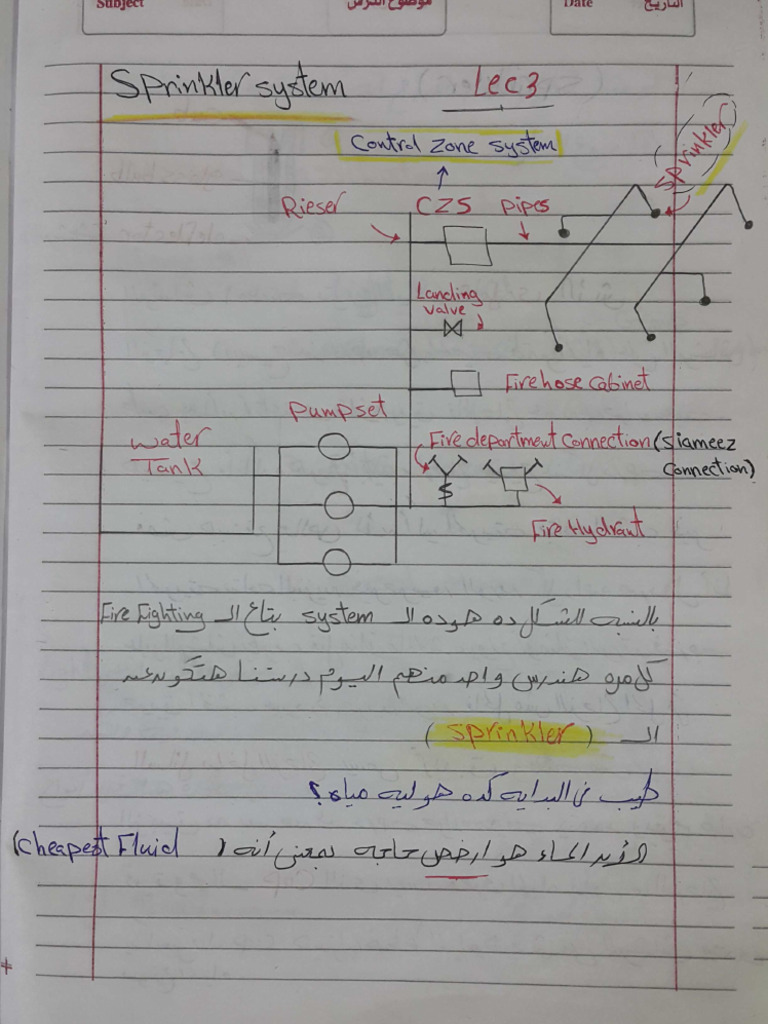 Subject
موضوع الدرس
Date
التاريخ
Sprinkler system
Lec 3
Control zone system
Sprinkler
Rieser
CZS
Pipes
Landing
valve
Fire hose Cabinet
Pump set
Water
Tank
Fire department Connection (Siameez
Connection)
Fire Hydrant
بالنسبه للشكل ده هو ده الـ system بتاع الـ Fire Fighting
كل مره هندرس واحد منهم اليوم درستنا هتكون عن
الـ (Sprinkler)
طيب في البدايه كده هو ليه مياه؟
الماء هو ارخص حاجه بمعنى أنه (Cheapest Fluid)